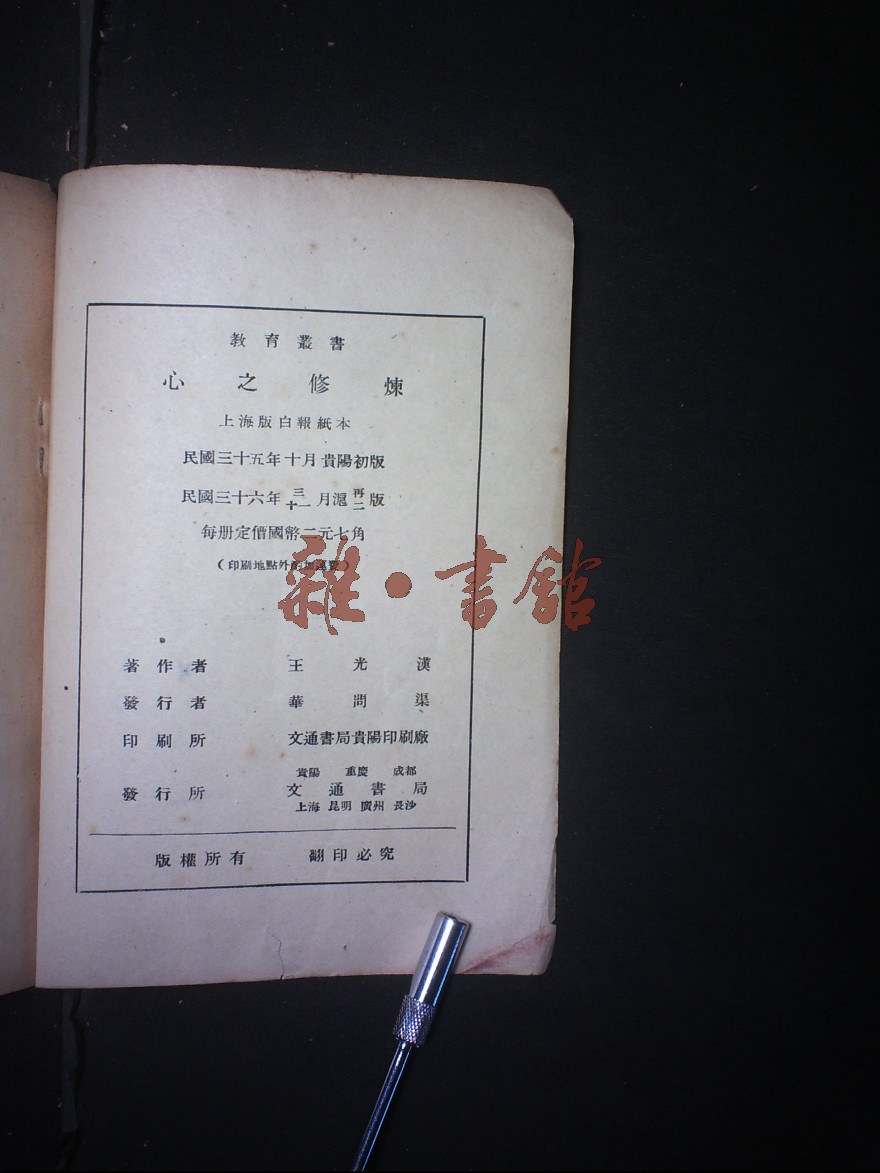 教育叢書
心之修煉
上海版白報紙本
民國三十五年十月貴陽初版
民國三十六年 三 十一 月滬 再 二 版
每册定價國幣二元七角
（印刷地點外酌加運費）
雜·書館
著作者 王光漢
發行者 華問渠
印刷所 文通書局貴陽印刷廠
貴陽 重慶 成都
發行所 文通書局
上海 昆明 廣州 長沙
版權所有 翻印必究